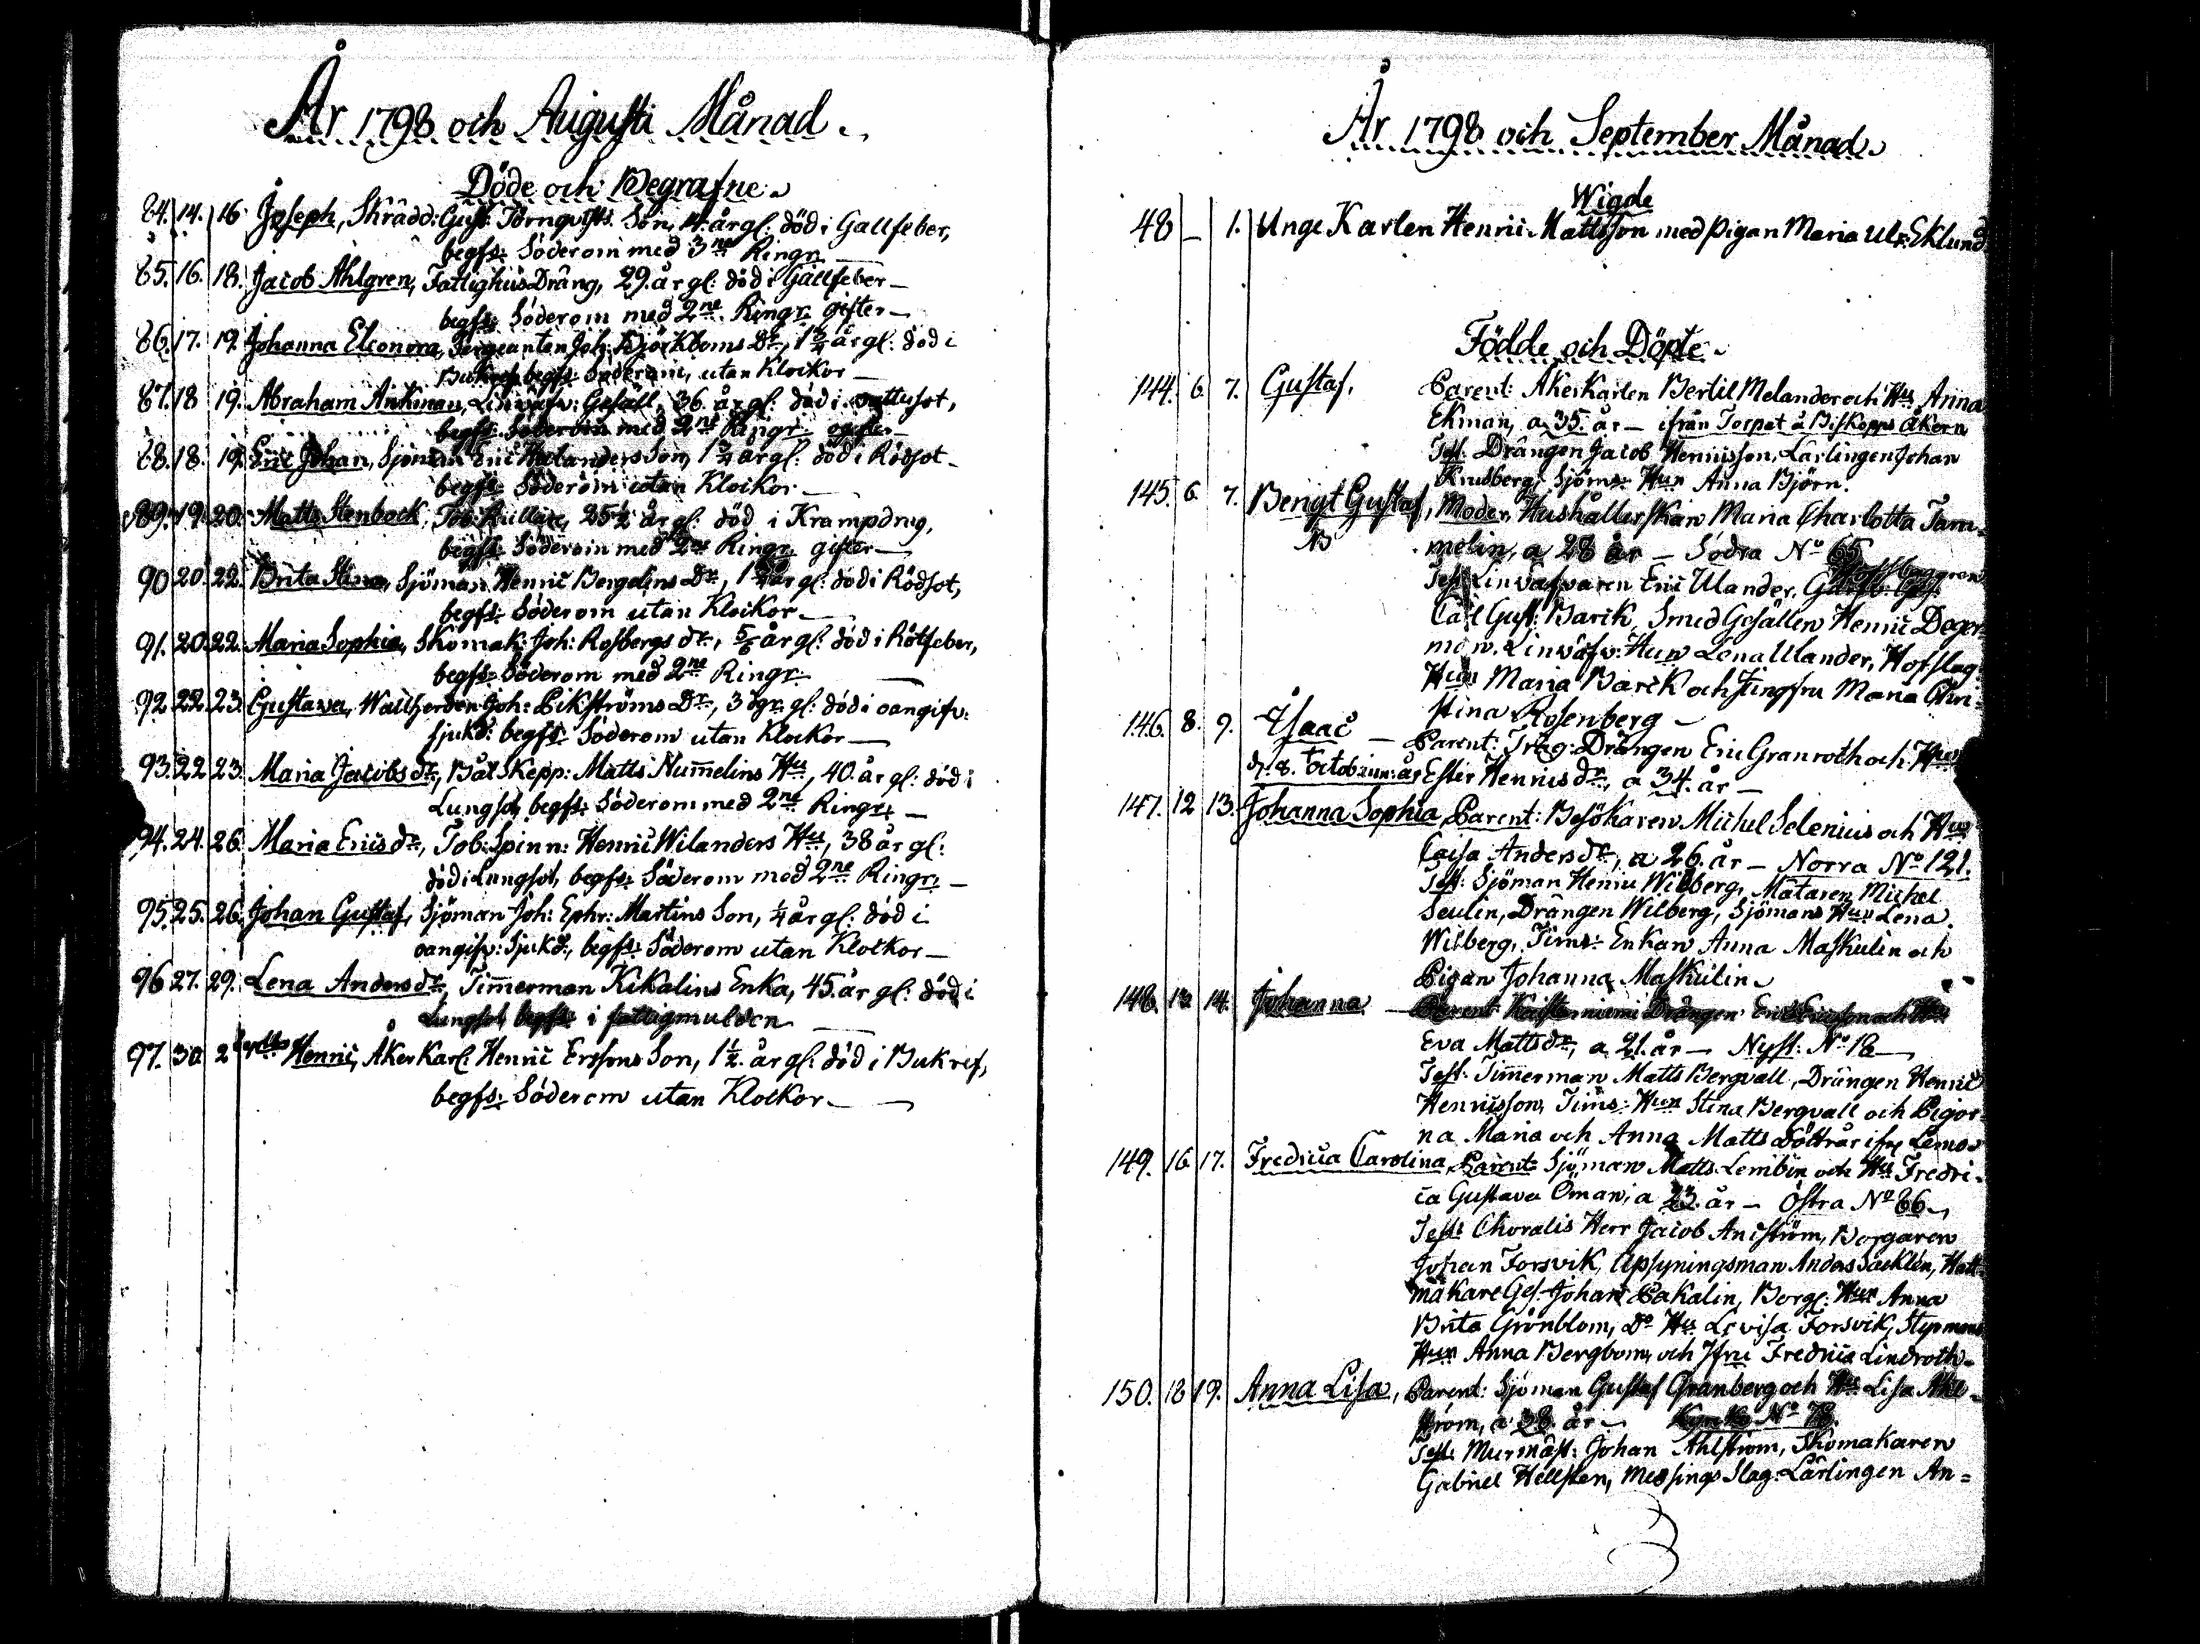 År 1798 och Augusti Månad.
Döde och Begrafne.
84. 14. 16. Joseph, Skrädd: Gust. Törnqvists Son, 4. år gl: död i Gallfeber,
begfs: Söderom med 3ne Ringr
85. 16. 18. Jacob Ahlgren, Fattighus Dräng, 29. år gl: död i Gallfeber —
begfs: Söderom med 2ne Ringr: gifter —
86. 17. 19. Johanna Eleonora, Sergeanten Joh: Björkboms Dr, 1 3/4 år gl: död i
begfs: Söderom, utan Klockor —
87. 18 19. Abraham Ankman, Linväfv: Gesäll, 36. år gl: död i
begfs: Söderom med 2ne Ringr:
88. 18. 19. Eric Johan, Sjöman Eric Son, 1 3/4 år gl: död i Rödsot —
begfs: Söderom utan Klockor —
89. 19. 20. Matts Stenbock, 25 1/2 år gl: död i Krampdrag,
begfs: Söderom med 2ne Ringr: gifter —
90 20. 22. Brita Stina, Sjöman Henric Bergelins Dr, år gl: död i Rödsot,
begfs: Söderom utan Klockor —
91. 20. 22. Maria Sophia, Skomak: Joh: Rosbergs dr, 5/6 år gl: död i Rötfeber,
begfs: Söderom med 2ne Ringr:
92 22. 23. Gustava, Joh: Vikströms Dr, 3 dgr gl: död i oangifv:
sjukd: begfs: Söderom utan Klockor —
93. 22 23. Maria Jacobs dr, Båt Skepp: Matts Num̄elins Hu, 40. år gl: död i
Lungsot, begfs: Söderom med 2ne Ringr: —
94. 24. 26. Maria Erics dr, Tob: Spinn: Henric Wilanders Hu, 38 år gl:
död i Lungsot, begfs: Söderom med 2ne Ringr: —
95. 25. 26. Johan Gustaf, Sjöman Joh: Ephr: Martins Son, 1/4 år gl: död i
oangifv: Sjukd:, begfs: Söderom utan Klockor —
96 27. 29. Lena Anders dr, Tim̄erman Kikalins Enka, 45. år gl: död i
Lungsot, begfs: i fattigmulden
97. 30 2 Septbr Henric, Åker Karl: Henric Erssons Son, 1 1/2. år gl: död i Bukref,
begfs: Söderom utan Klockor —
År 1798 och September Månad.
Wigde
48 — 1. Unge Karlen Henric Mattsson med Pigan Maria Ulr: Eklund
Födde och Döpte.
144. 6. 7. Gustaf. Parent: Åkerkarlen Bertil Melander och Hus Anna
Ekman, a 35. år — ifrån Torpet å Biskopps åkern
Test: Drängen Jacob Henricsson, Lärlingen Johan
Knudberg, Sjöms: Hun Anna Björn.
145. 6. 7. Bengt Gustaf, Moder, Hushållerskan Maria Charlotta Tam=
melin, a 28 år — Södra No 65
Test: Linväfvaren Eric Ulander,
Carl Gust: Barck, Smed Gesällen Henric Deger=
man, Linväfv: Hun Lena Ulander, Hofslag:
Hun Maria Barck och Jungfru Maria Chri=
stina Rosenberg —
146. 8. 9. Isaac — Parent: Drängen Eric Granroth och Hus
d. 8. Octob Ester Henrics dr, a 34. år —
147. 12 13. Johanna Sophia, Parent: Besökaren Michel Selenius och Hus
Caisa Anders dr, a 26. år — Norra No 121.
Test: Sjöman Henric Wilberg, Mätaren Michel
Seulin, Drängen Wilberg, Sjömans Hun Lena
Wilberg, Tims: Enkan Anna Maskulin och
Pigan Johanna Maskulin.
148. 13 14. Johanna — Parent: Drängen Eric Ericsson och Hus
Eva Matts dr, a 21. år — Nyst: No 18 —
Test: Tim̄erman Matts Bergvall, Drängen Henric
Henricsson, Tims: Hun Stina Bergvall och Pigor=
na Maria och Anna Matts Döttrar ifrå Lemo.
149. 16 17. Fredrica Carolina, Parent: Sjöman Matts Lembin och Hus Fredri=
ca Gustava Öman, a 23. år — Östra No 86 —
Test: Choralis Herr Jacob Aniström, Borgaren
Johan Forsvik, Upsyningsman Anders Säcklén, Hatt=
makare Ges: Johan Pakalin, Borg: Hun Anna
Brita Grönblom, Do Hu Lovisa Forsvik, Styrmans
Hun Anna Bergbom, och Jfru Fredrica Lindroth.
150. 18 19. Anna Lisa, Parent: Sjöman Gustaf Granberg och Hus Lisa Ahl=
ström, a 38. år — Kyrko No 78.
Test: Murmäst: Johan Ahlström, Skomakaren
Gabriel Hellsten, Messings Slag: Lärlingen An=